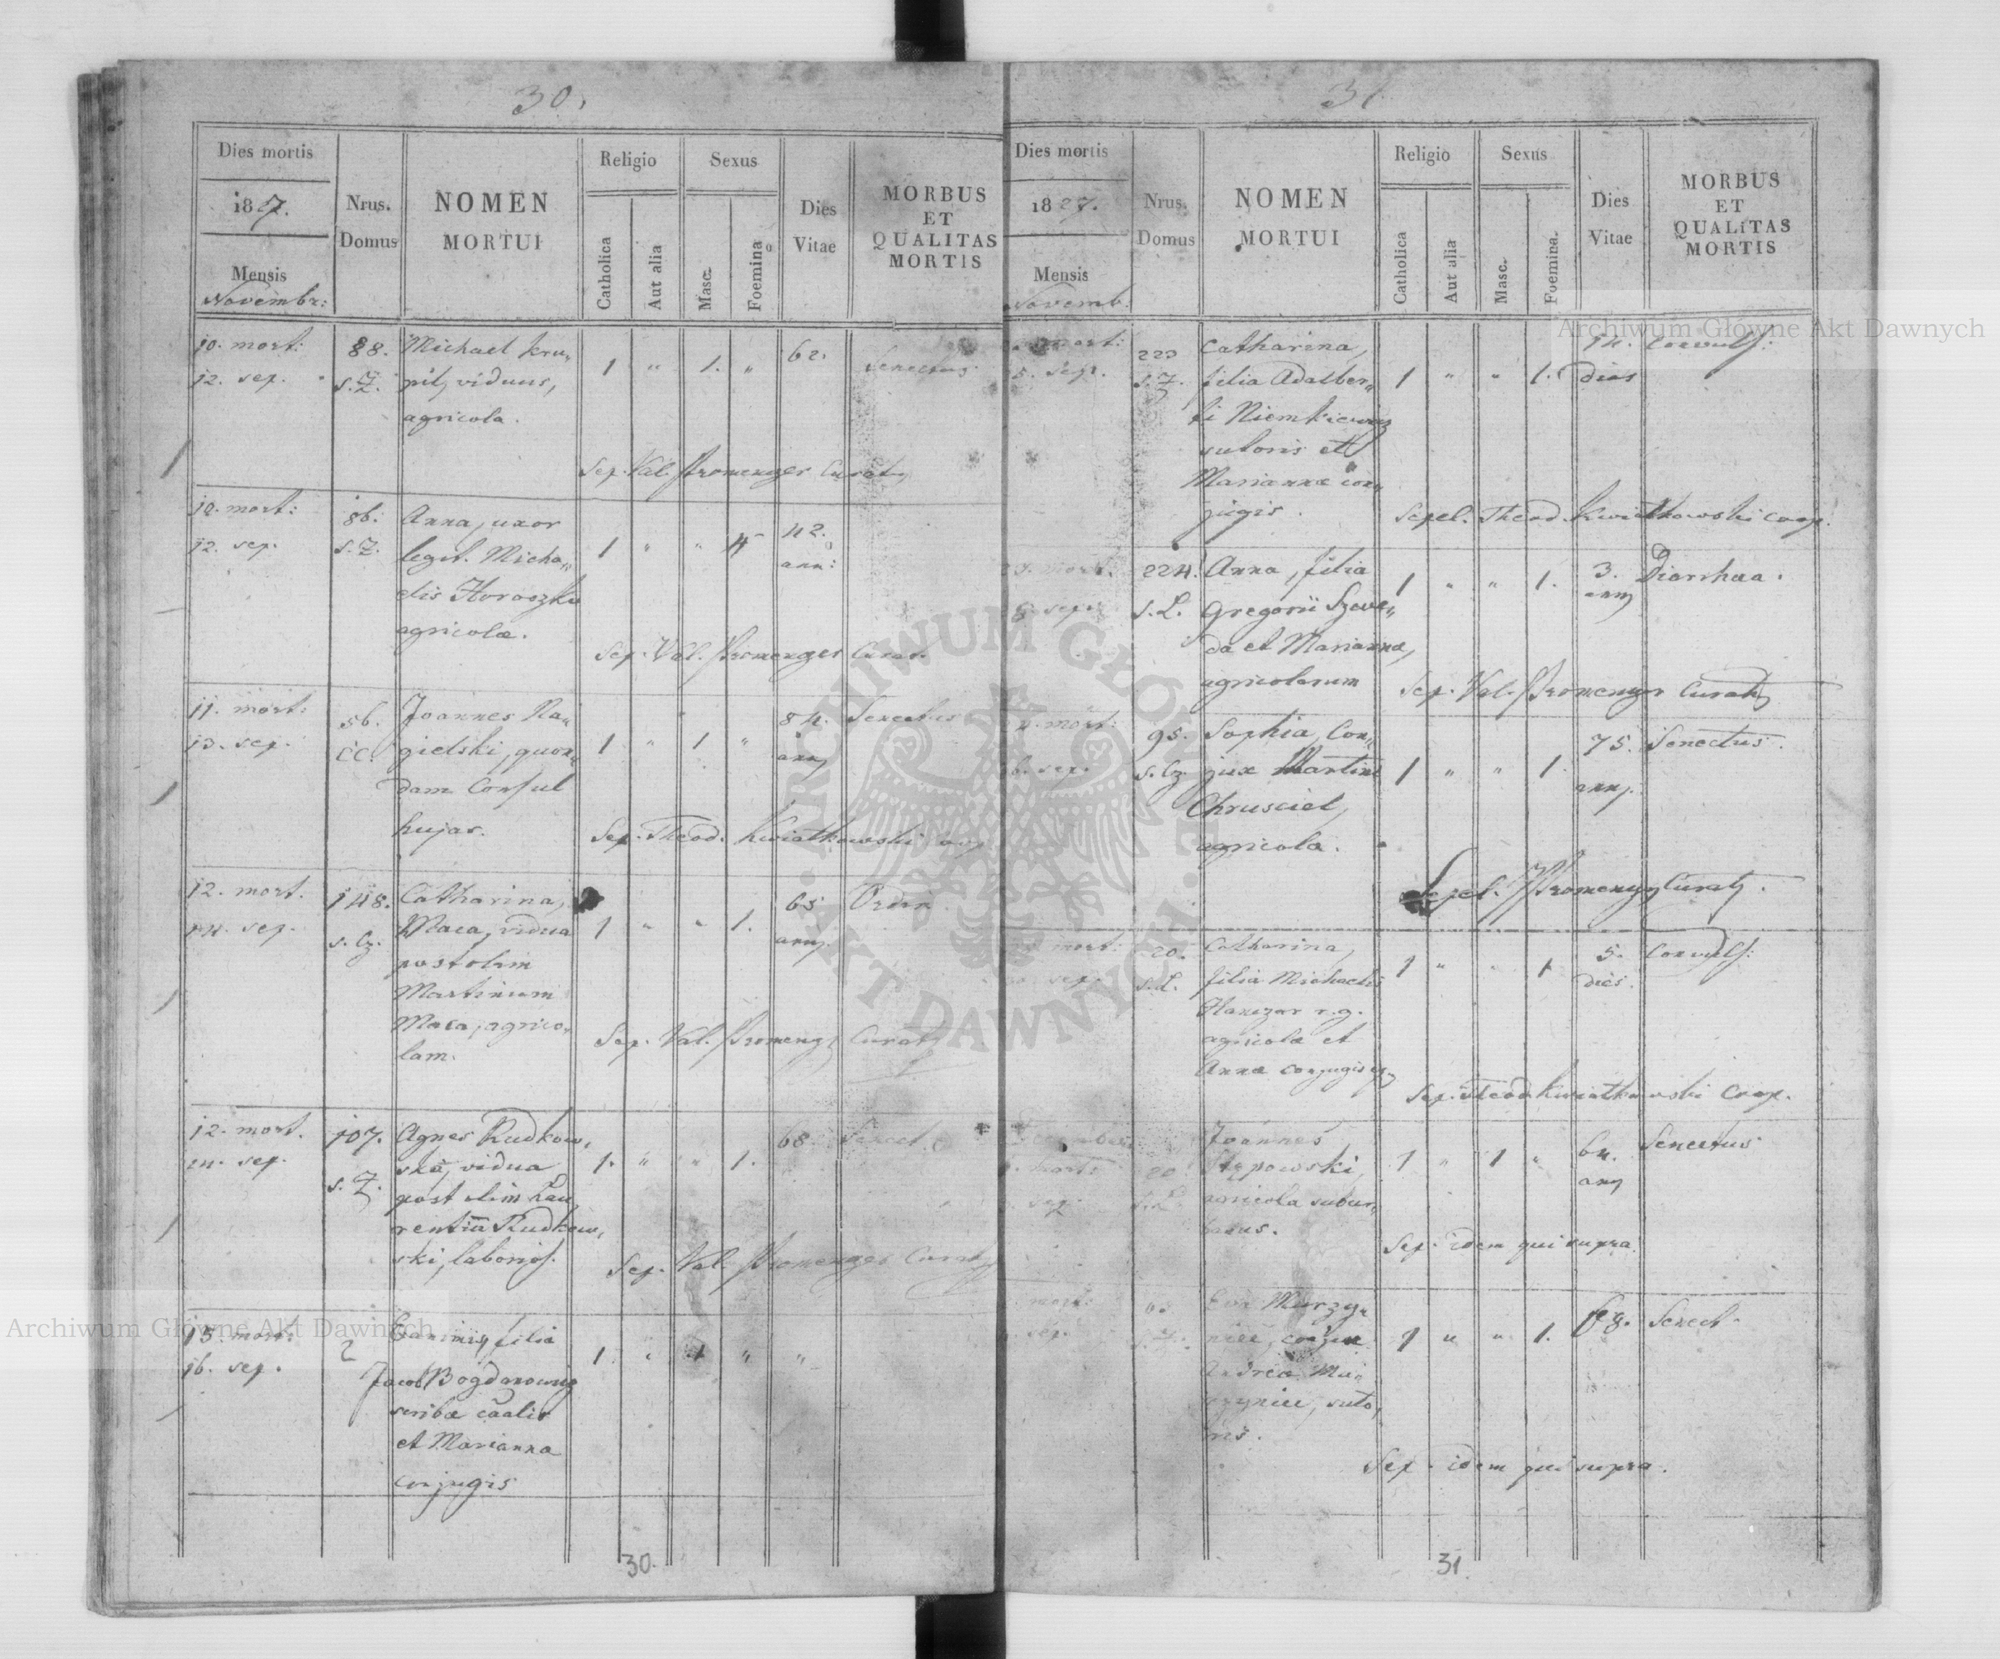 30.
Dies mortis
1827.
Mensis
Novembr:
Nrus.
Domus
NOMEN
MORTUI
Religio
Catholica
Aut alia
Sexus
Masc.
Foemina
Dies
Vitae
MORBUS
ET
QUALITAS
MORTIS
10. mort:
12. sep.
88.
s. Z.
Michael Kru-
pil, viduus,
agricola.
1 " 1. "
62.
Senectus
Sep. Val. Promenger Curat.
10. mort:
12. sep.
86.
s. Z.
Anna, uxor
legit. Micha-
elis Horoszko
agricolæ.
1 " "
42.
ann:
Sep. Val. Promenger Curat.
11. mort:
13. sep.
56.
CC.
Joannes Ra-
gielski, quon-
dam Consul
hujas.
1 " 1 "
84.
ann
Senectus
Sep. Theod. Kwiatkowski coop
12. mort.
14. sep.
148.
s. Cz.
Catharina,
Maca, vidua
post olim
Martinum
Maca, agrico-
lam.
1 " " 1.
65
ann.
Ordin
Sep. Val. Promeng Curat
12. mort.
14. sep.
107.
s. Z.
Agnes Rudkow-
ska, vidua
post olim Lau-
rentiū Rudkow-
ski, laborios.
1. " " 1.
68.
Senect.
Sep. Val. Promenger Curat
15. mort:
16. sep.
2
filia
Jacob Bogdanowicz
scribæ cāalis
et Marianna
conjugis
1 " 1 " "
30.
31
Dies mortis
1827.
Mensis
Novemb.
Nrus.
Domus
NOMEN
MORTUI
Religio
Catholica
Aut alia
Sexus
Masc.
Foemina.
Dies
Vitae
MORBUS
ET
QUALITAS
MORTIS
mort:
5. sep.
223
s. Z.
Catharina,
filia Adalber-
ti Niemkiewicz
sutoris et
Mariannæ con-
jugis.
1 " " 1.
14.
dies
Convuls:
Sepel. Theod. Kwiatkowski coop.
mort.
sep.
224.
s. L.
Anna, filia
Gregorii Szwe-
da et Marianna,
agricolarum
1 " " 1.
3.
ann
Diarrhaea.
Sep. Val. Promenger Curat
mort:
6. sep.
95.
s. Cz.
Sophia, Con-
jux Martini
Chrusciel,
agricola.
1 " " 1.
75.
ann.
Senectus.
Sepel. Promeng Curat.
mort:
sep.
20.
s. L.
Catharina,
filia Michaelis
r. g.
agricolæ et
Annæ conjugis
1 " " 1
5.
dies.
Convuls:
Sep. Theod Kwiatkowski Coop.
December
mort.
sep.
20
s. L.
Joannes
Stępowski,
agricola subur-
banus.
1 " 1 "
64.
ann
Senectus
Sep. idem qui supra.
mort:
sep.
s. Z.
Eva Murzy-
niec, conjux
Andreæ Mu-
rzyniec, suto-
ris.
1 " " 1.
68.
Senect.
Sep. idem qui supra.
31
Archiwum Główne Akt Dawnych
Archiwum Główne Akt Dawnych
ARCHIWUM GŁÓWNE
AKT DAWNYCH